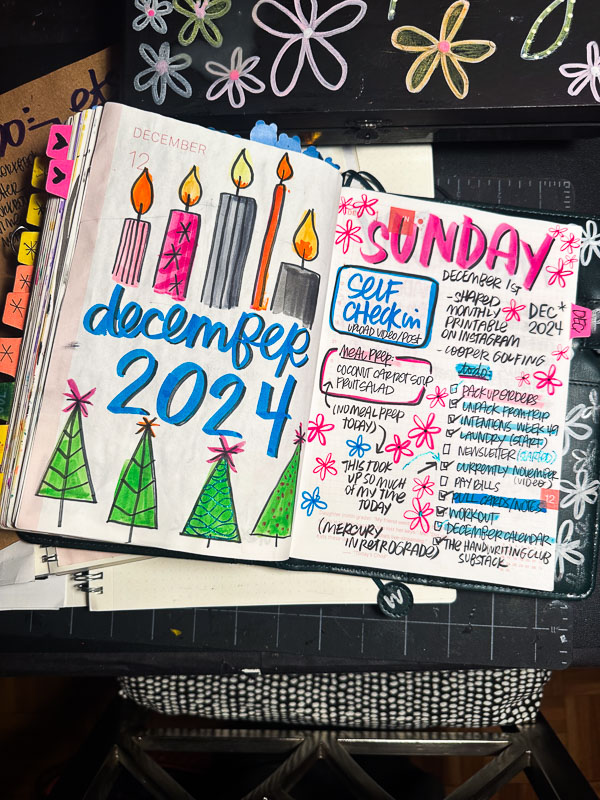 DECEMBER
12
december
2024
SUNDAY
DECEMBER 1ST
- SHARED
MONTHLY
PRINTABLE
ON INSTAGRAM
- COOPER GOLFING
DEC*
2024
DEC
SELF
CHECK in
UPLOAD VIDEO/POST
MEAL PREP:
COCONUT CARROT SOUP
FRUIT SALAD
(NO MEAL PREP
TODAY)
THIS TOOK
UP SO MUCH
OF MY TIME
TODAY
(MERCURY
IN RETROGRADE)
todo:
PACK UP ORDERS
UNPACK FROM TRIP
INTENTIONS WEEK 49
LAUNDRY (START)
NEWSLETTER (STARTED)
CURRENTLY NOVEMBER
(VIDEO)
PAY BILLS
PULL CARDS/NOTES
WORKOUT
DECEMBER CALENDAR
THE HANDWRITING CLUB
SUBSTACK
12